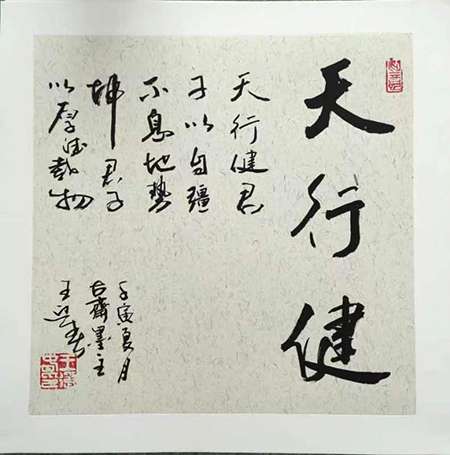 天行健
天行健君
子以自疆
不息地势
坤君子
以厚德载物
壬寅夏月
墨主
王